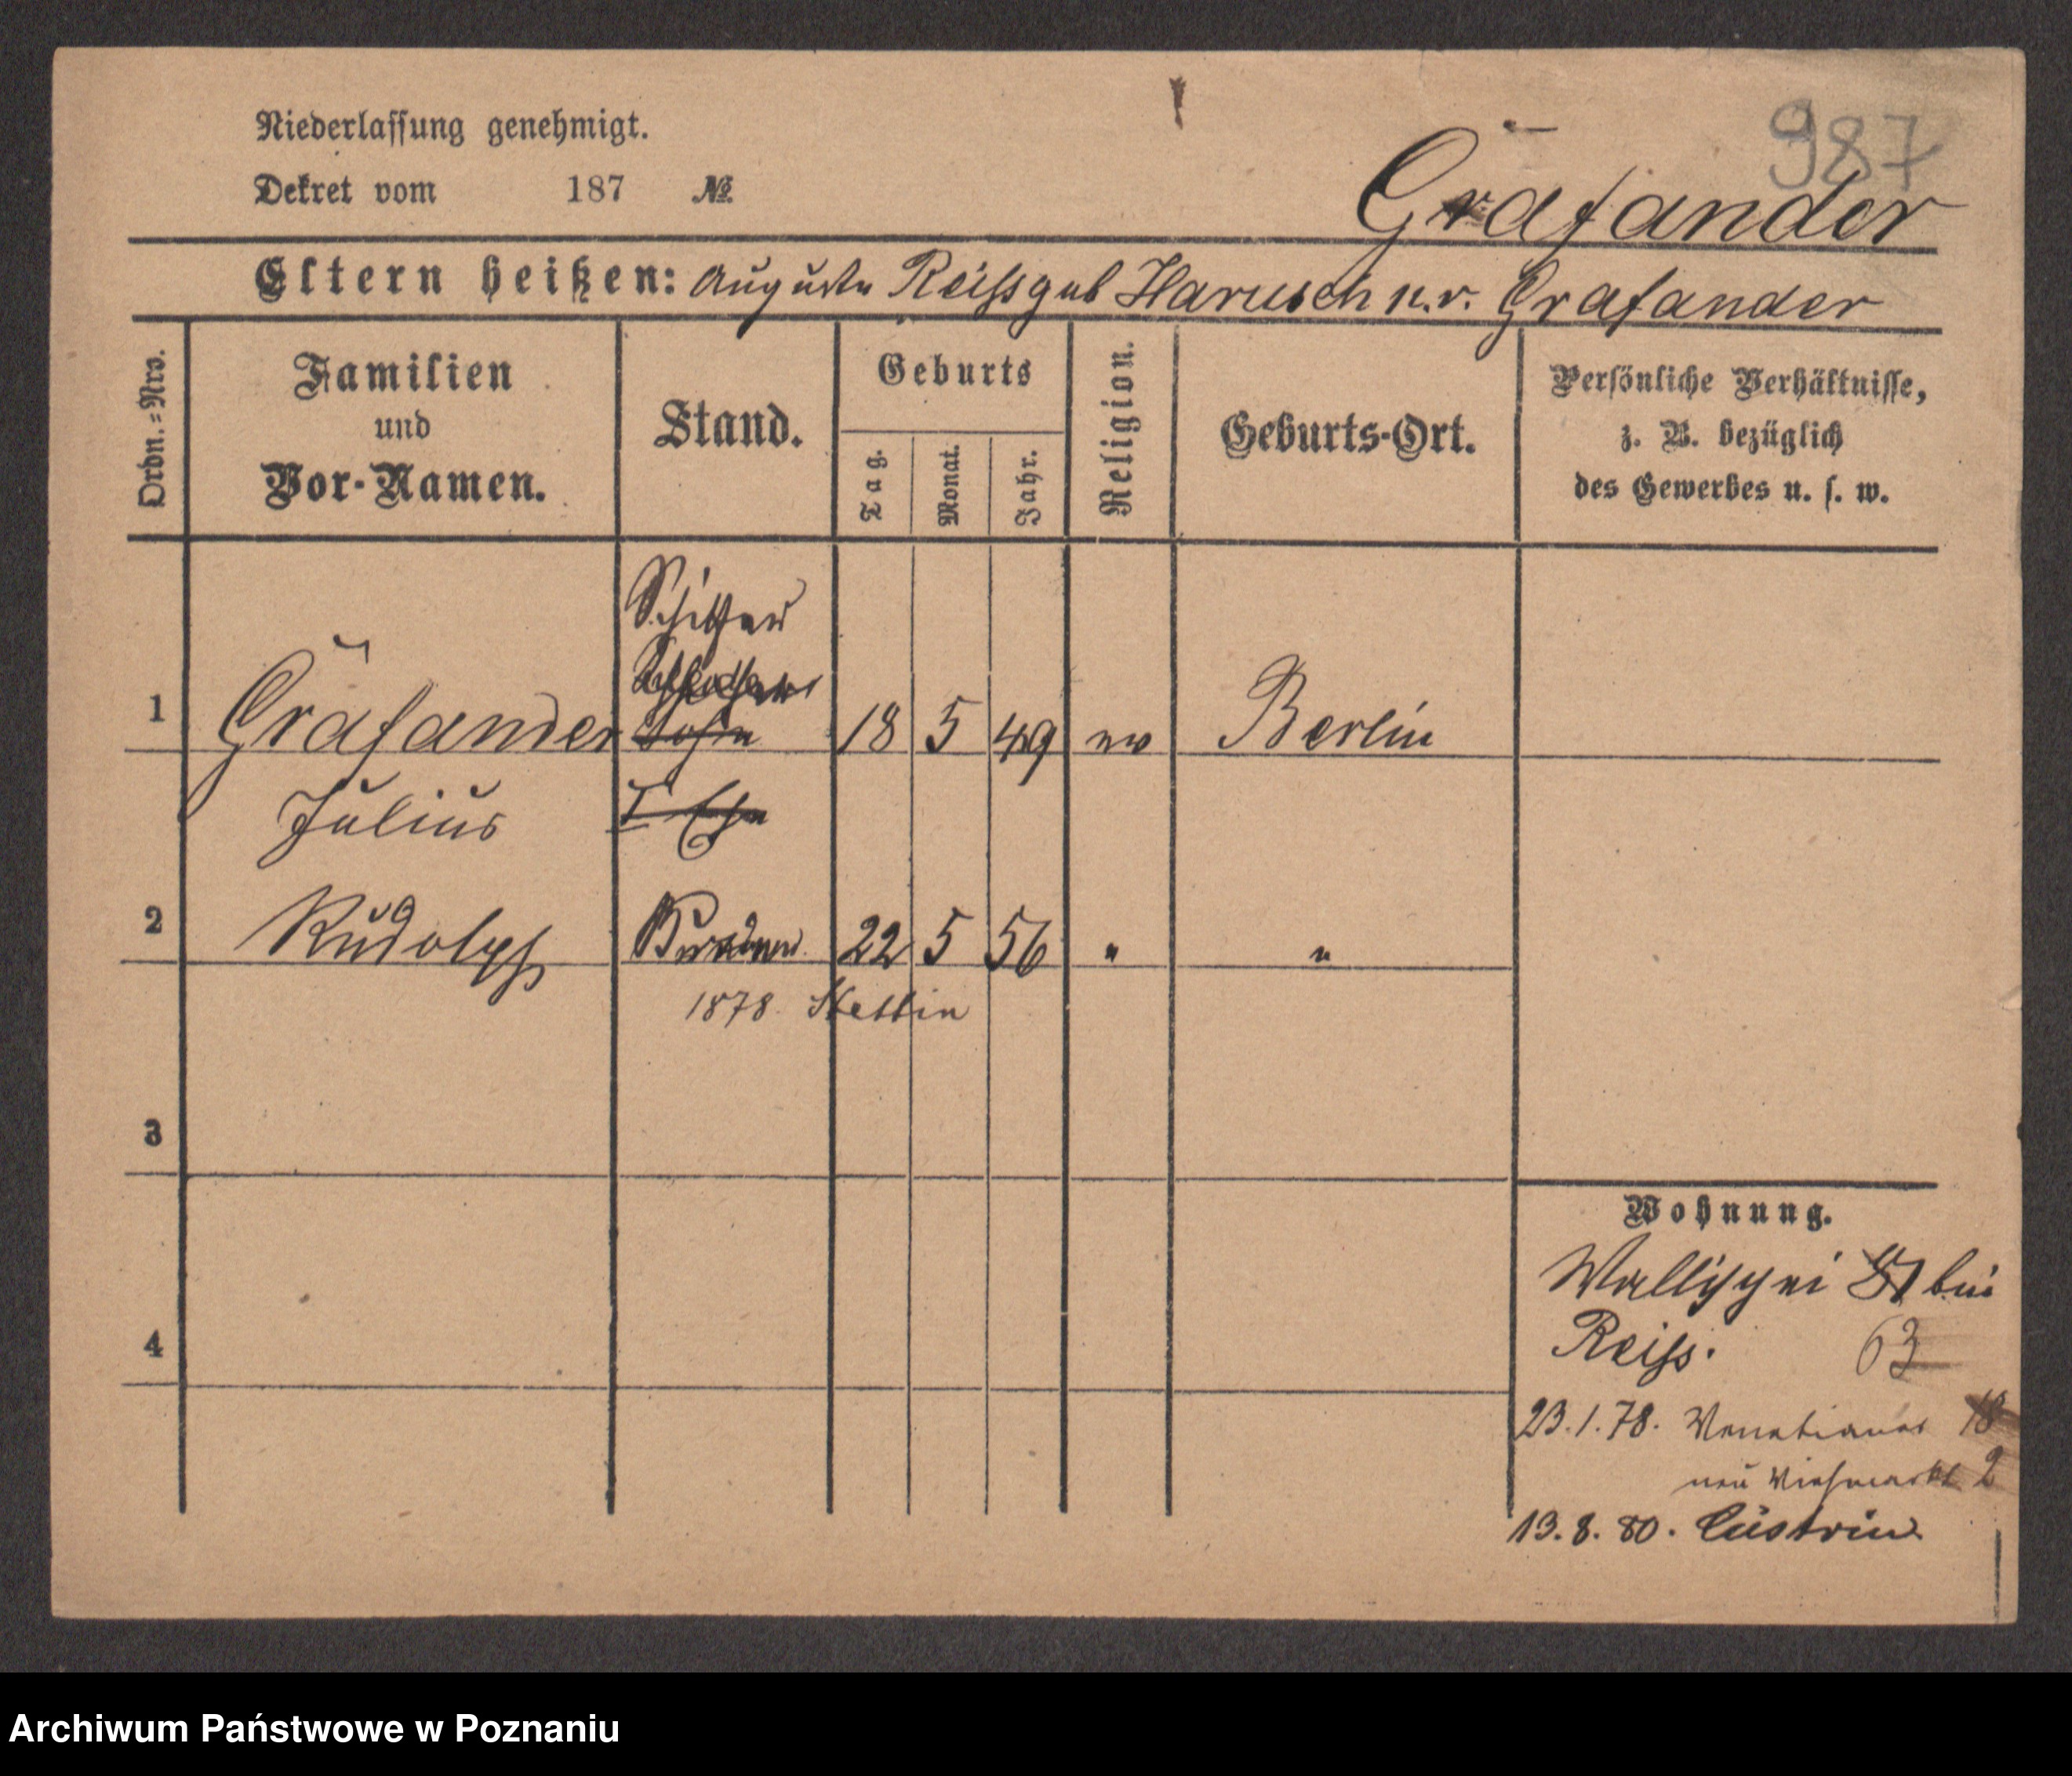 Niederlassung genehmigt.
987
Dekret vom 187 №
Gräfander
Eltern heißen: Auguste Reissgeb Harusch n.v. Grafander
Ordn.=Nro.
Familien
und
Vor-Namen.
Stand.
Geburts
Tag.
Monat.
Jahr.
Religion.
Geburts-Ort.
Persönliche Verhältnisse,
z. B. bezüglich
des Gewerbes u. s. w.
Schiffer
1 Gräfander Sohn 18 5 49 ev Berlin
Julius I Ehe
2 Rudolph 22 5 56 " "
1878. Stettin
3
Wohnung.
Wallischei bei
4 Reiss. 63
23.1.78. Venetianer 18
neu Viehmarkt 2
13.8.80. Cüstrin
Archiwum Państwowe w Poznaniu